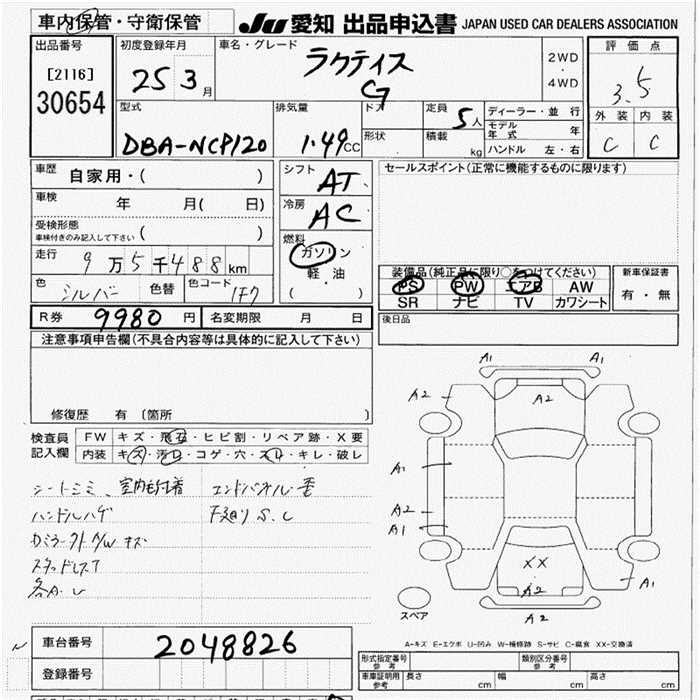 車内保管・守衛保管 JU 愛知 出品申込書 JAPAN USED CAR DEALERS ASSOCIATION
出品番号 初度登録年月 車名・グレード ラクティス 2WD ・ 4WD 評価点
[2116] 30654 25 3月 G 3.5
型式 排気量 ドア 定員 5人 ディーラー・並行 外装 内装
DBA-NCP120 1.49CC 形状 積載 kg モデル年式 年 C C
ハンドル 左・右
車歴 自家用・( ) シフト AT セールスポイント(正常に機能するものに限ります)
車検 年 月( 日) 冷房 AC
受検形態 車検付きのみ記入して下さい ( )
燃料 ガソリン 軽油 ( )
走行 9万5千488km
装備品(純正品に限り○をつけてください) 新車保証書
色 シルバー 色替 色コード 1F7
PS PW エアB AW 有・無
SR ナビ TV カワシート
R券 9980円 名変期限 月 日 後日品
注意事項申告欄(不具合内容等は具体的に記入して下さい)
修復歴 有 〔箇所 〕
検査員記入欄 FW キズ・飛石・ヒビ割・リペア跡・X要
内装 キズ・汚レ・コゲ・穴・スレ・キレ・破レ
シートシミ、室内
ハンドルハゲ 下廻りS.C
A1 A1
A2 A2
A1
A2
A1
XX
A2 A1
A2
スペア
A-キズ E-エクボ U-凹み W-補修跡 S-サビ C-腐食 XX-交換済
車台番号 2048826
登録番号
形式指定番号 参考 類別区分番号 参考
車庫証明用 参考 長さ cm 幅 cm 高さ cm